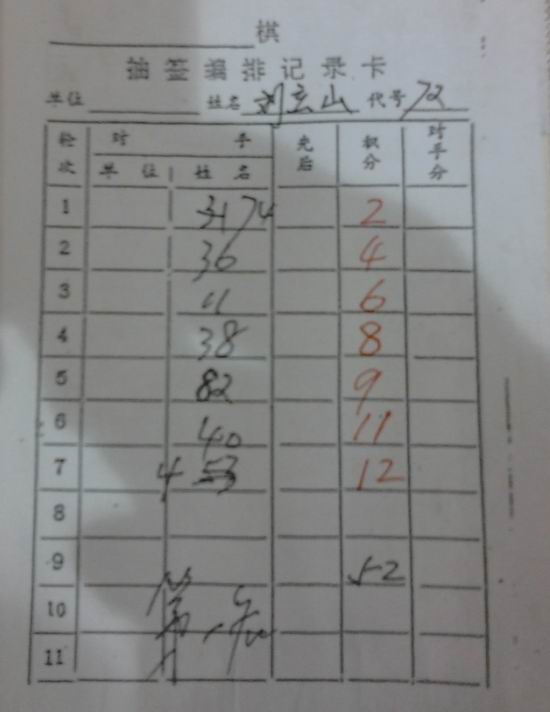 棋
抽签编排记录卡
单位 姓名 刘玄山 代号 72
轮次 对手 先后 积分 对手分
单位 姓名
1 74 2
2 36 4
3 11 6
4 38 8
5 82 9
6 40 11
7 4 12
8
9 52
10 第一名
11